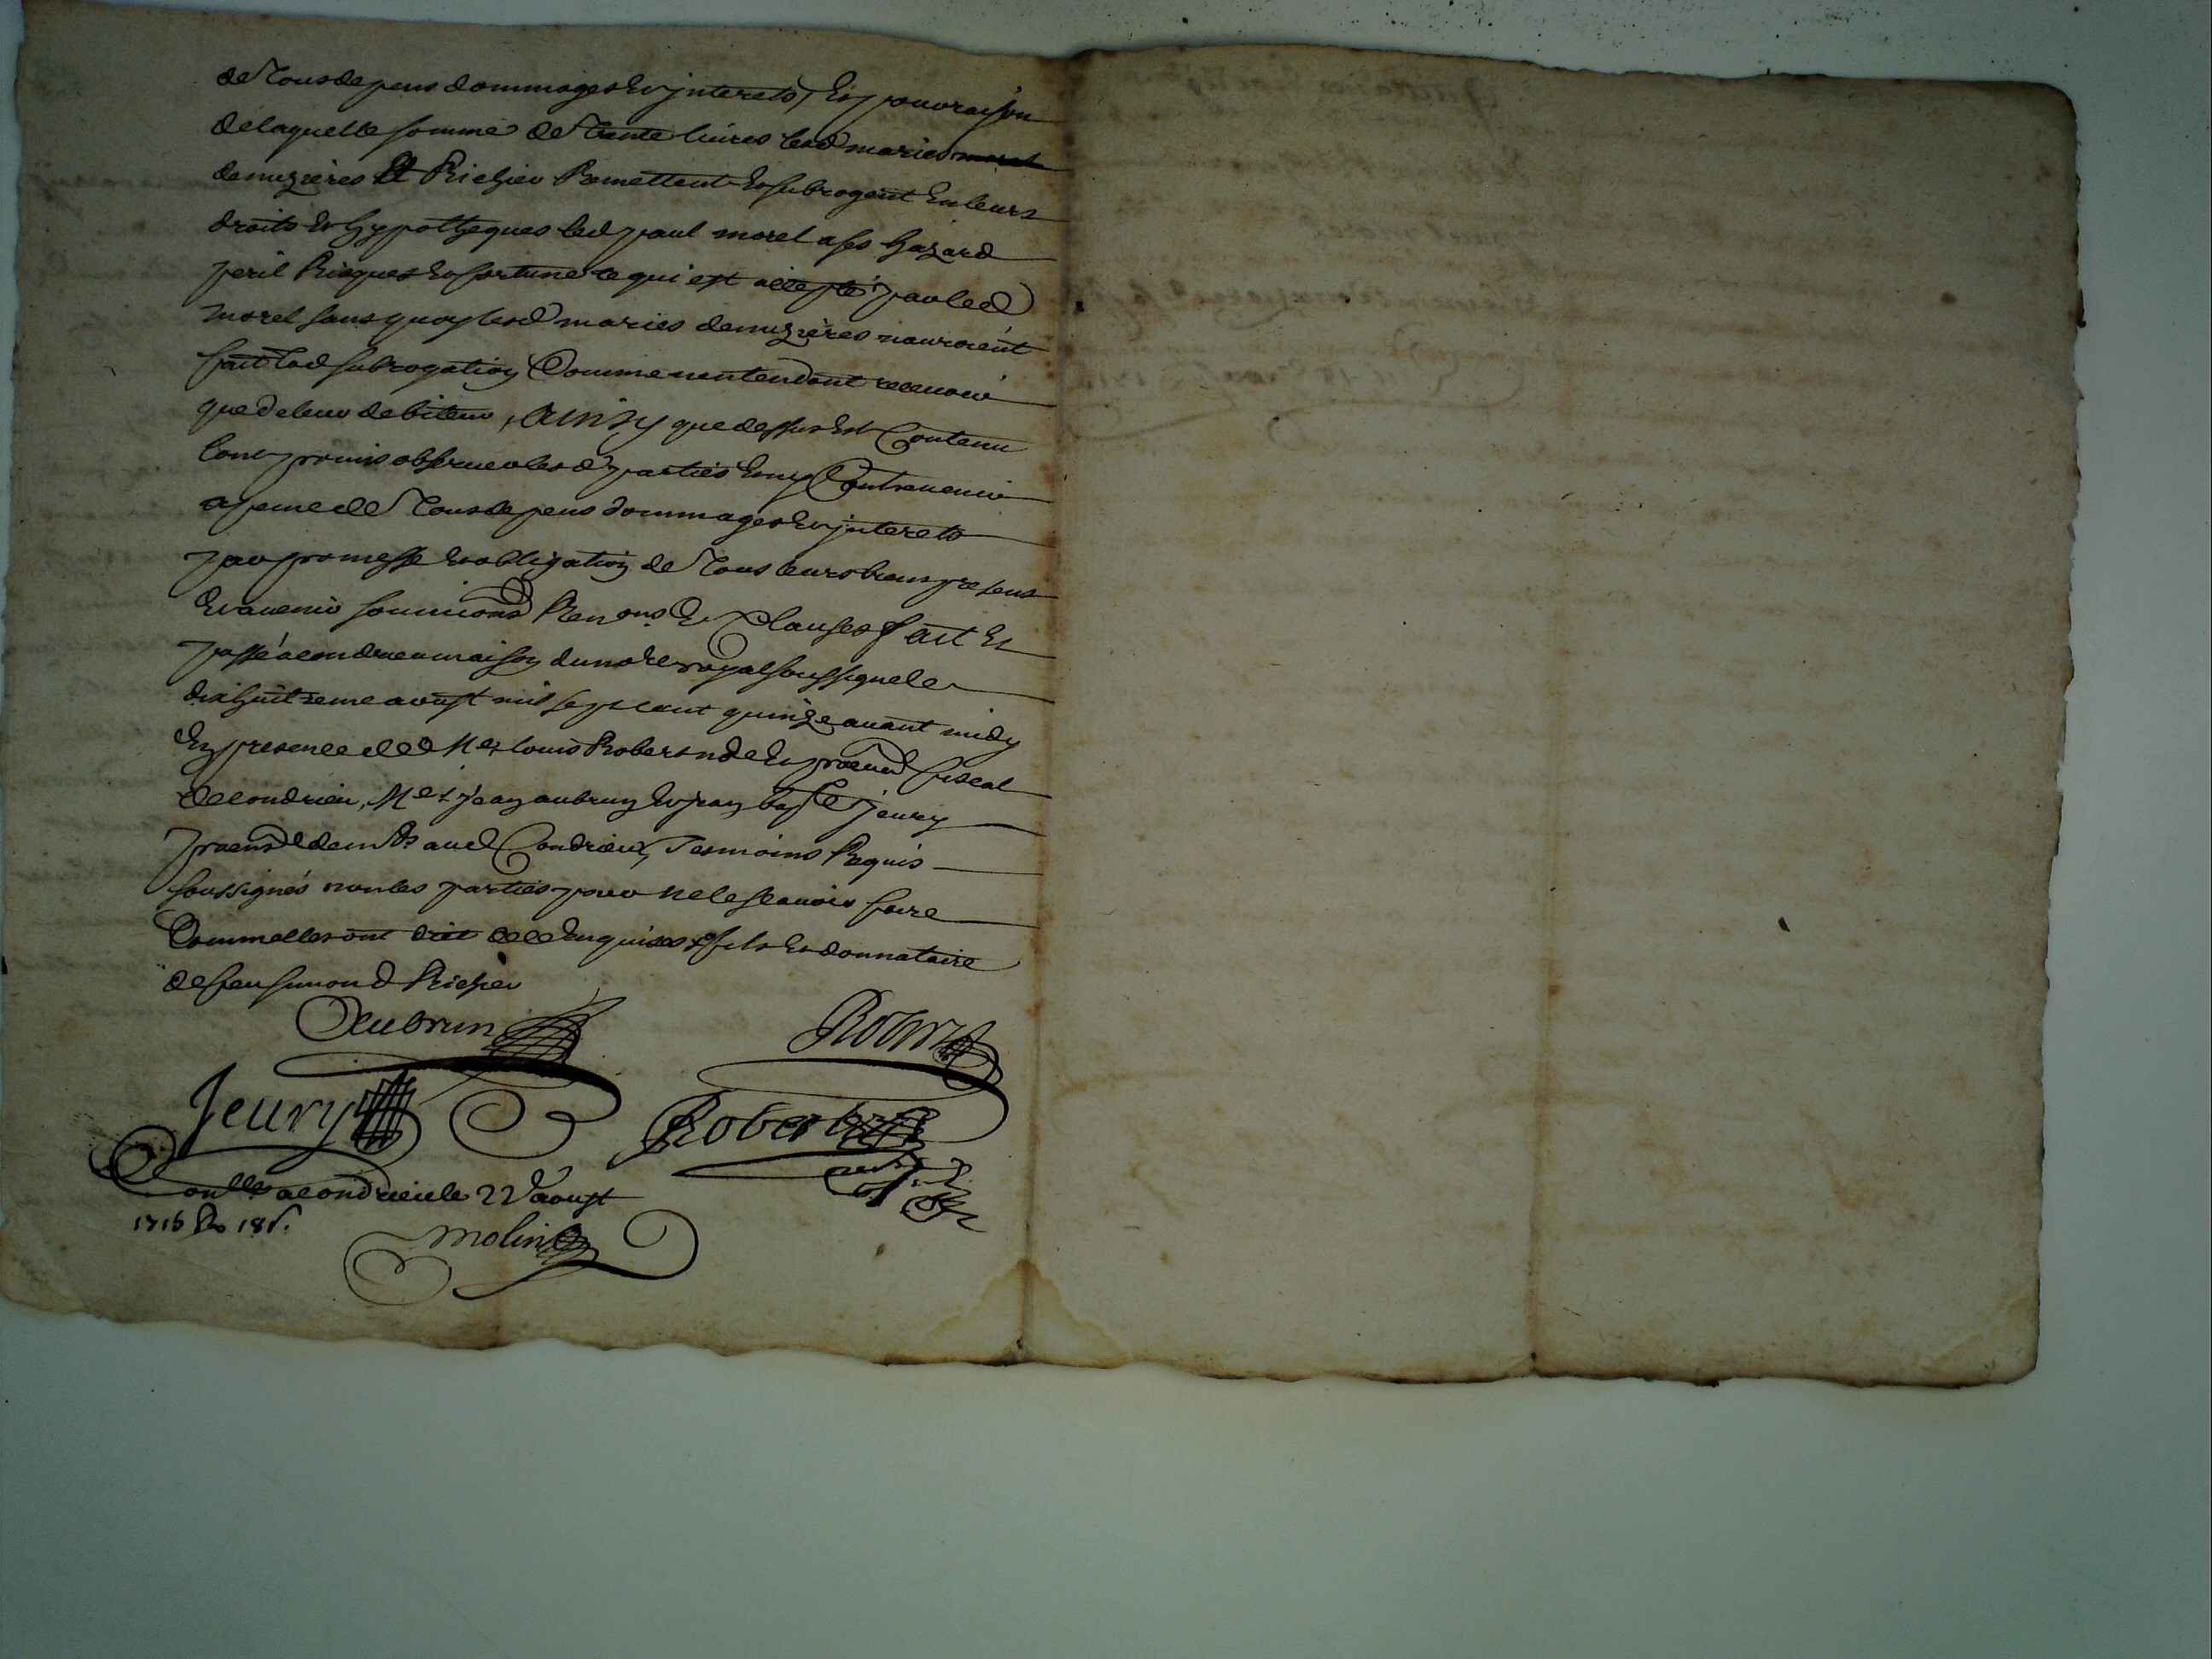 de tous depens dommages et jnterets, Et pour raison
de laquelle somme de trente livres lesd maries
demuzieres Et Richier Remettent et subrogent En leurs
droits et hypotheques led paul morel a ses hazard
peril Risques et fortune ce qui est accepté par led
morel sans quoy lesd maries demuzieres nauroient
fait lad subrogation Comme nentendant recevoir
que de leur debiteur, Ainsy que dessus est Contenu
lont promis observer lesd parties et ny Contrevenir
a peine de tous depens dommages et jnterets
par promesse et obligation de tous leurs biens presens
et avenir soumions Renons et Clauses fait Et
passé a condrieu maison du nore royal soussigne le
dixhuitieme aoust mil sept cent quinze avant midy
En presence de Mes louis Robert nre et procur fiscal
de condrieu, Mes jean aubrun et jean bapte jeury
demts aud Condrieu, Tesmoins Requis
soussignés non les parties pour ne le scavoir faire
Comme elles ont dit de ce Enquises fils et donnataire
de feu simond Richier
Aubrun
Robert
Jeury
Robert
Conlle a condrieu le 22 aoust
1715
molin